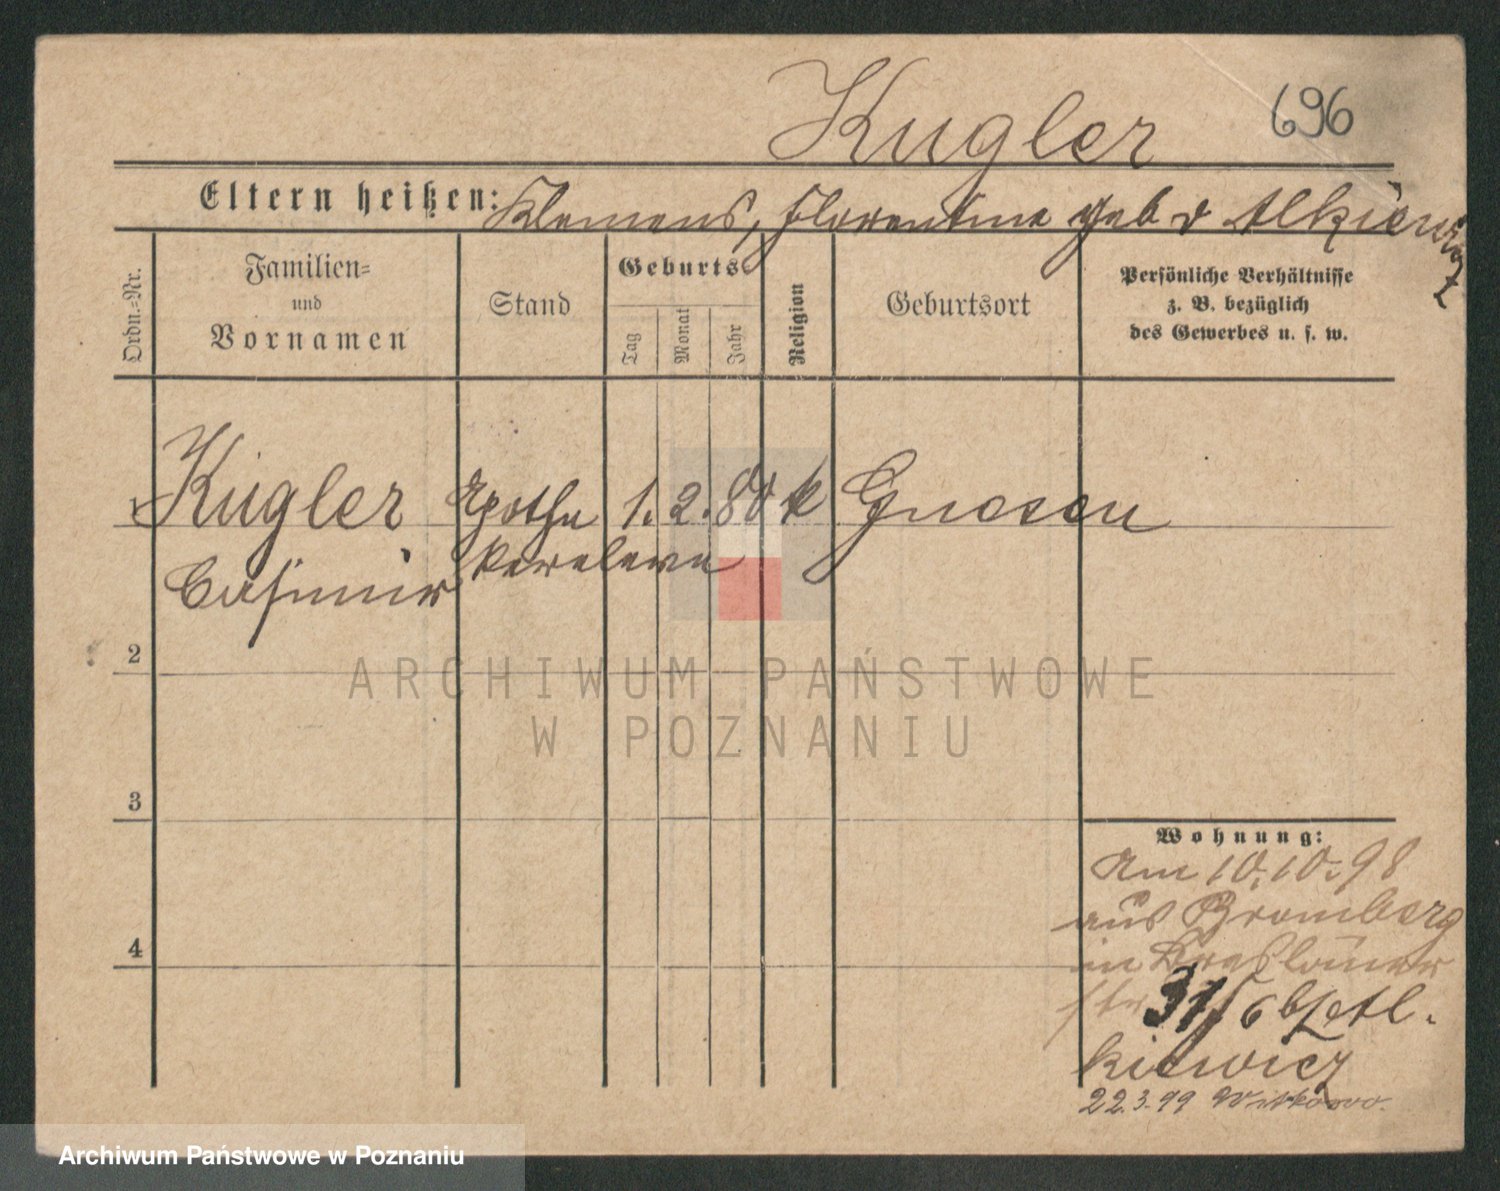 Kugler 696
Eltern heißen: Klemens, Florentina geb v Alkiewicz
Ordn.-Nr.
Familien-
und
Vornamen
Stand
Geburts-
Tag
Monat
Jahr
Religion
Geburtsort
Persönliche Verhältnisse
z. B. bezüglich
des Gewerbes u. s. w.
1 Kugler Apothe 1. 2. 80 k Gnesen
Casimir kereleve
2
3
4
Wohnung:
Am 10.10.98
aus Bromberg
in Breslauer
str 31/6 b
kiewicz
22.3.99 Witkowo.
ARCHIWUM PAŃSTWOWE
W POZNANIU
Archiwum Państwowe w Poznaniu